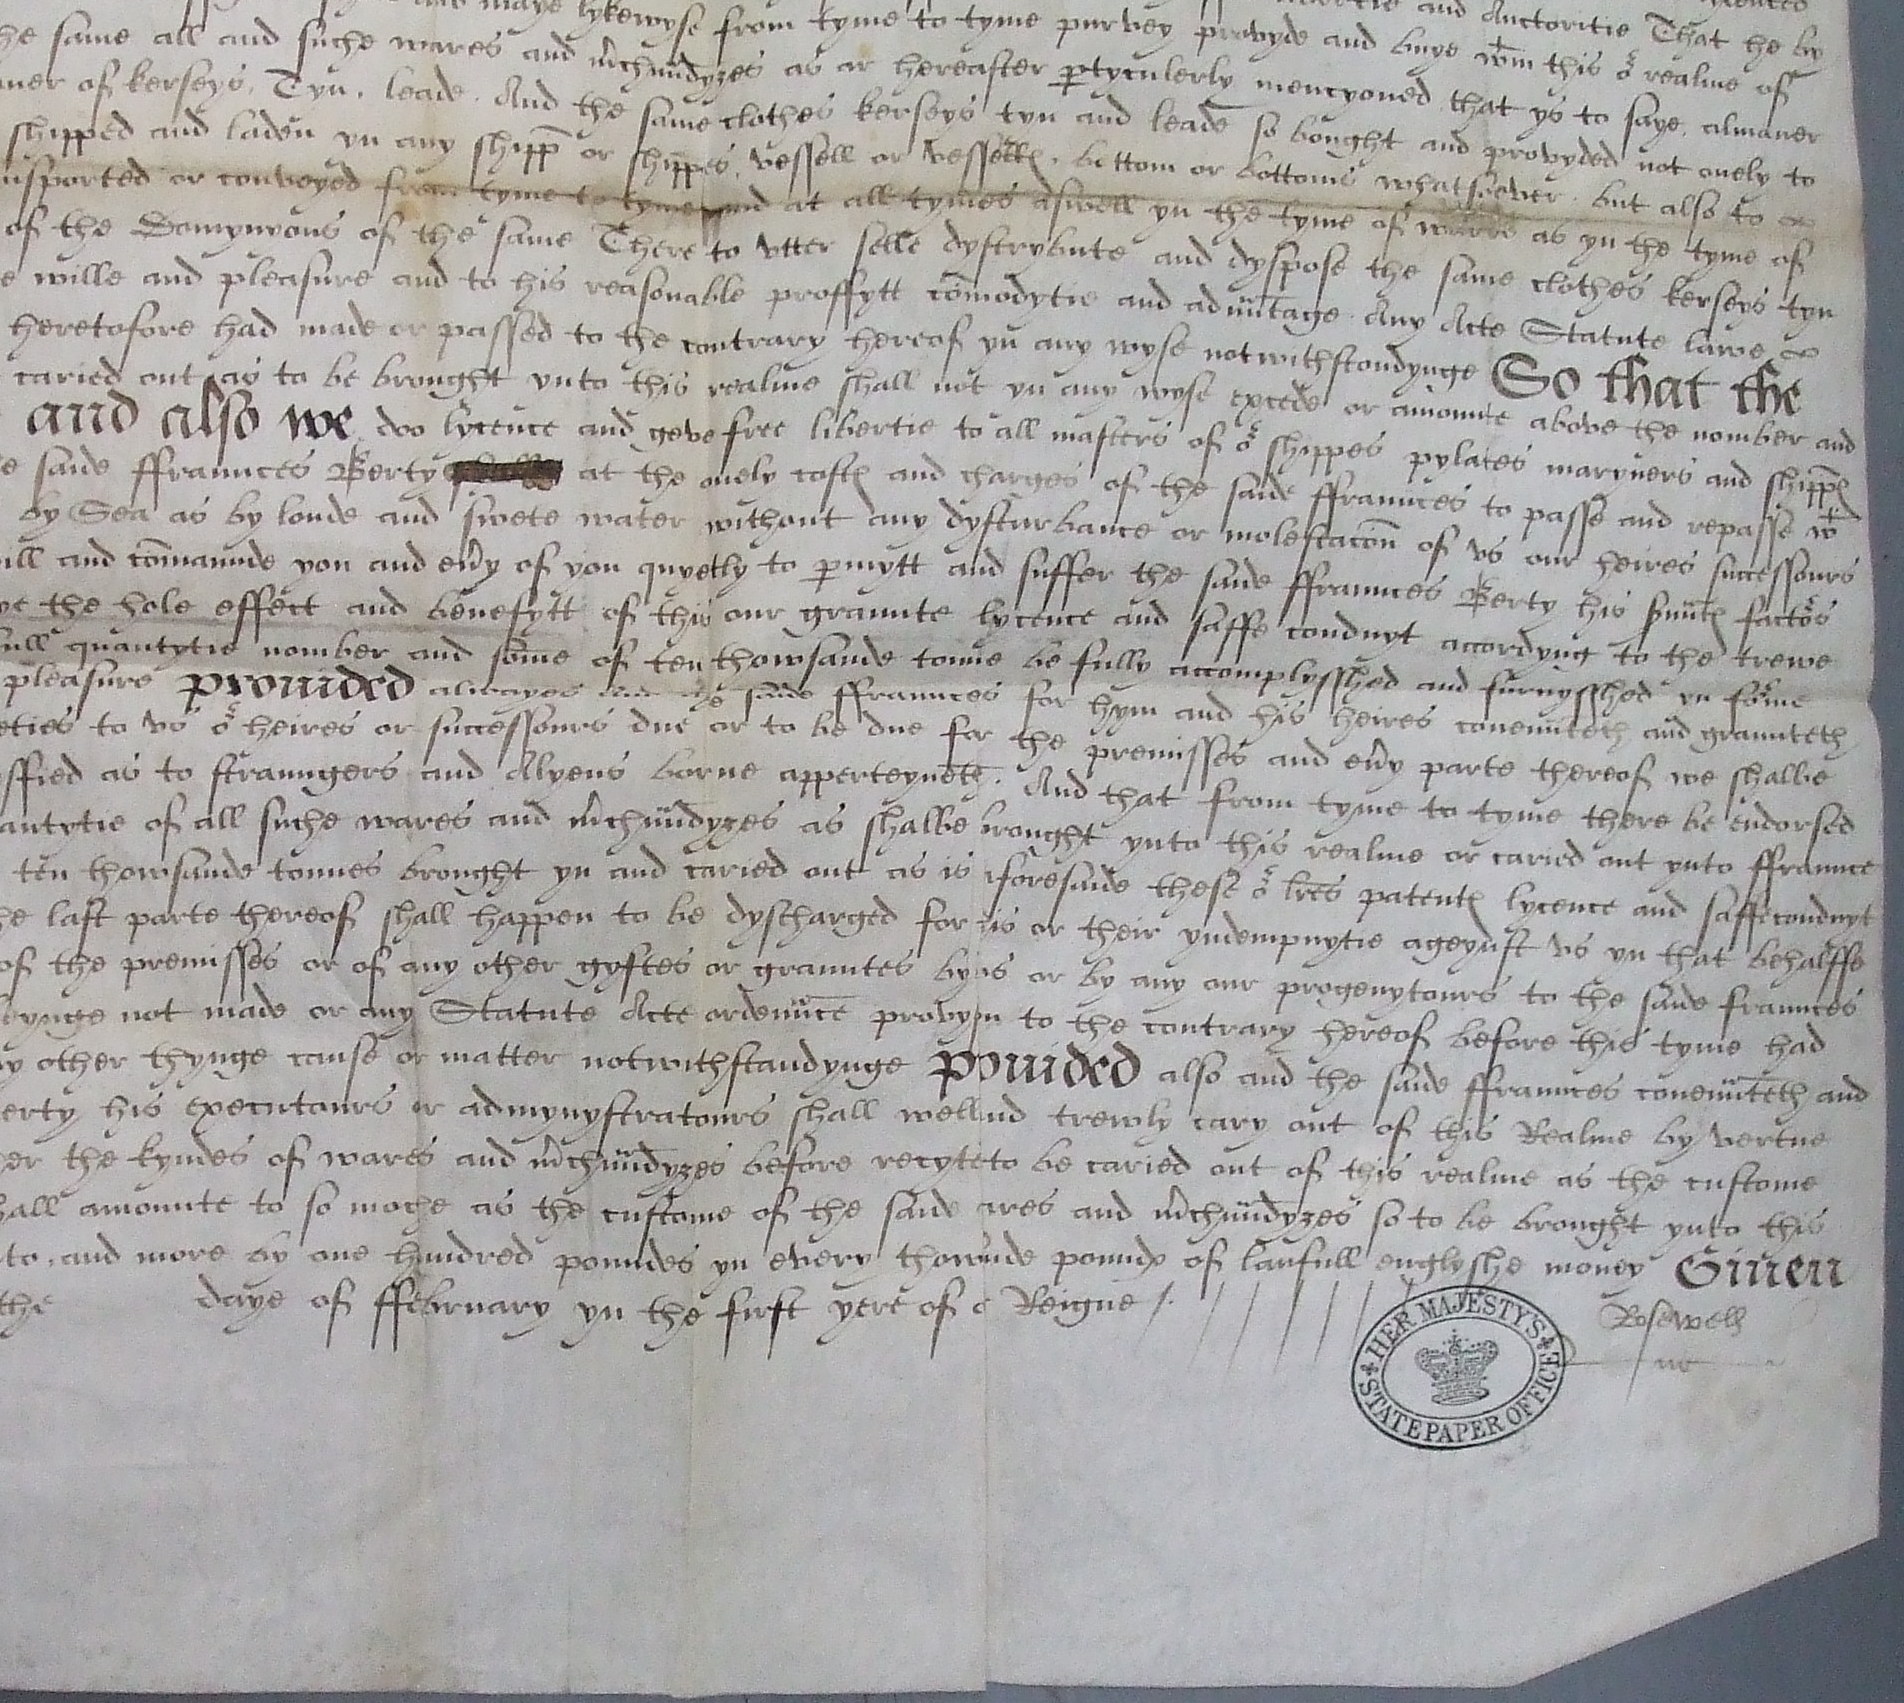 and maye lykewyse from tyme to tyme purvey provyde and buye wtin this or realme of
the same all and suche wares and mchundyzes as ar hereafter ptyculerly mencyoned that ys to saye, almaner
of kerseys, Tyn, leade. And the same clothes kerseys tyn and leade so bought and provyded not onely to
shipped and laden yn any shipp or shippes, vessell or vessells, bottom or bottoms whatsoever, but also to
or conveyed from tyme to tyme and at all tymes aswell yn the tyme of warre as yn the tyme of
of the Domynyons of the same There to vtter selle dystrybute and dyspose the same clothes kerseys tyn
wille and pleasure and to his reasonable proffytt comodytie and aduntage. Any Acte Statute lawe
heretofore had made or passed to the contrary hereof yn any wyse notwithstondynge So that the
caried out as to be brought ynto this realme shall not yn any wyse excede or amounte above the nomber and
and also we doo lycence and geve free libertie to all masters of or shippes pylates maryners and shippes
saide ffraunces Berty at the onely costes and charges of the saide ffraunces to passe and repasse wt
by Sea as by londe and swete water without any dysturbance or molestacon of vs our heires successours
will and comaunde you and euy of you quyetly to pmytt and suffer the saide ffraunces Berty his suntes factors
the hole effect and benefytt of this our graunte lycence and saffe conduyt accordyng to the trewe
full quantytie nomber and some of ten thowsande tonne be fully accomplysshed and furnysshed yn forme
pleasure prouided alwayes saide ffraunces for hym and his heires conenuteth and graunteth
to vs or heires or successours due or to be due for the premisses and euy parte thereof we shalbe
as to straungers and Alyens borne apperteyneth. And that from tyme to tyme there be endorsed
quantytie of all suche wares and mchundyzes as shalbe brought ynto this realme or caried out ynto ffraunce
ten thowsande tonnes brought yn and caried out as is foresaide these or lres patentes lycence and saffeconduyt
the last parte thereof shall happen to be dyscharged for is or their yndempnytie ageynst vs yn that behalffe
of the premisses or of any other gyftes or grauntes by vs or by any our progenytours to the saide fraunces
not made or any Statute Acte ordenunce provysn to the contrary hereof before this tyme had
other thynge cause or matter notwithstandynge Prouided also and the saide ffraunces conenunteth and
Berty his executours or admynystratours shall well nd trewly cary out of this Realme by vertue
the kyndes of wares and mchundyzes before recyte to be caried out of this realme as the custome
shall amounte to so moche as the custome of the saide ares and mchundyzes so to be brought ynto this
and more by one hundred poundes yn every thowsnde pounde of laufull englysshe money Giuen
the daye of ffebruary yn the first yere of Reigne
Rosewell
HER MAJESTY'S STATE PAPER OFFICE